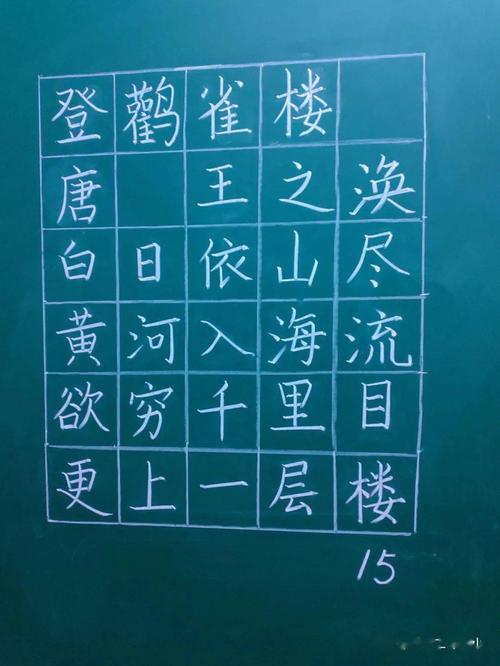 登鹳雀楼
唐 王之涣
白日依山尽
黄河入海流
欲穷千里目
更上一层楼
15